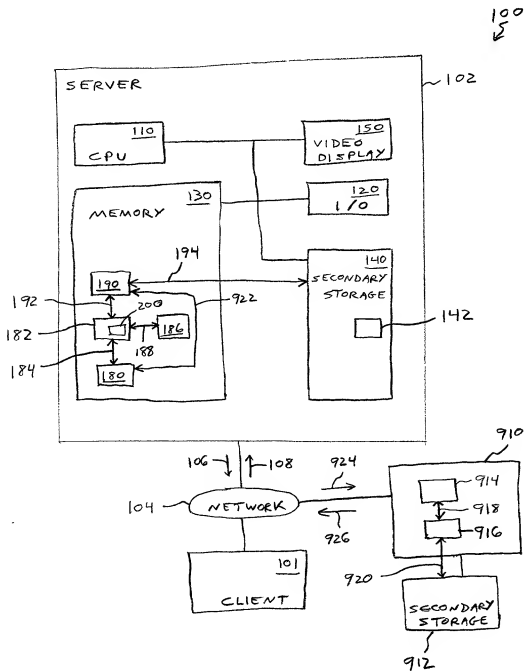 100
SERVER
102
110
CPU
150
VIDEO
DISPLAY
130
MEMORY
120
I/O
194
140
SECONDARY
STORAGE
190
192
922
200
182
186
188
142
184
180
106
108
924
910
914
104
NETWORK
918
916
926
920
101
CLIENT
SECONDARY
STORAGE
912